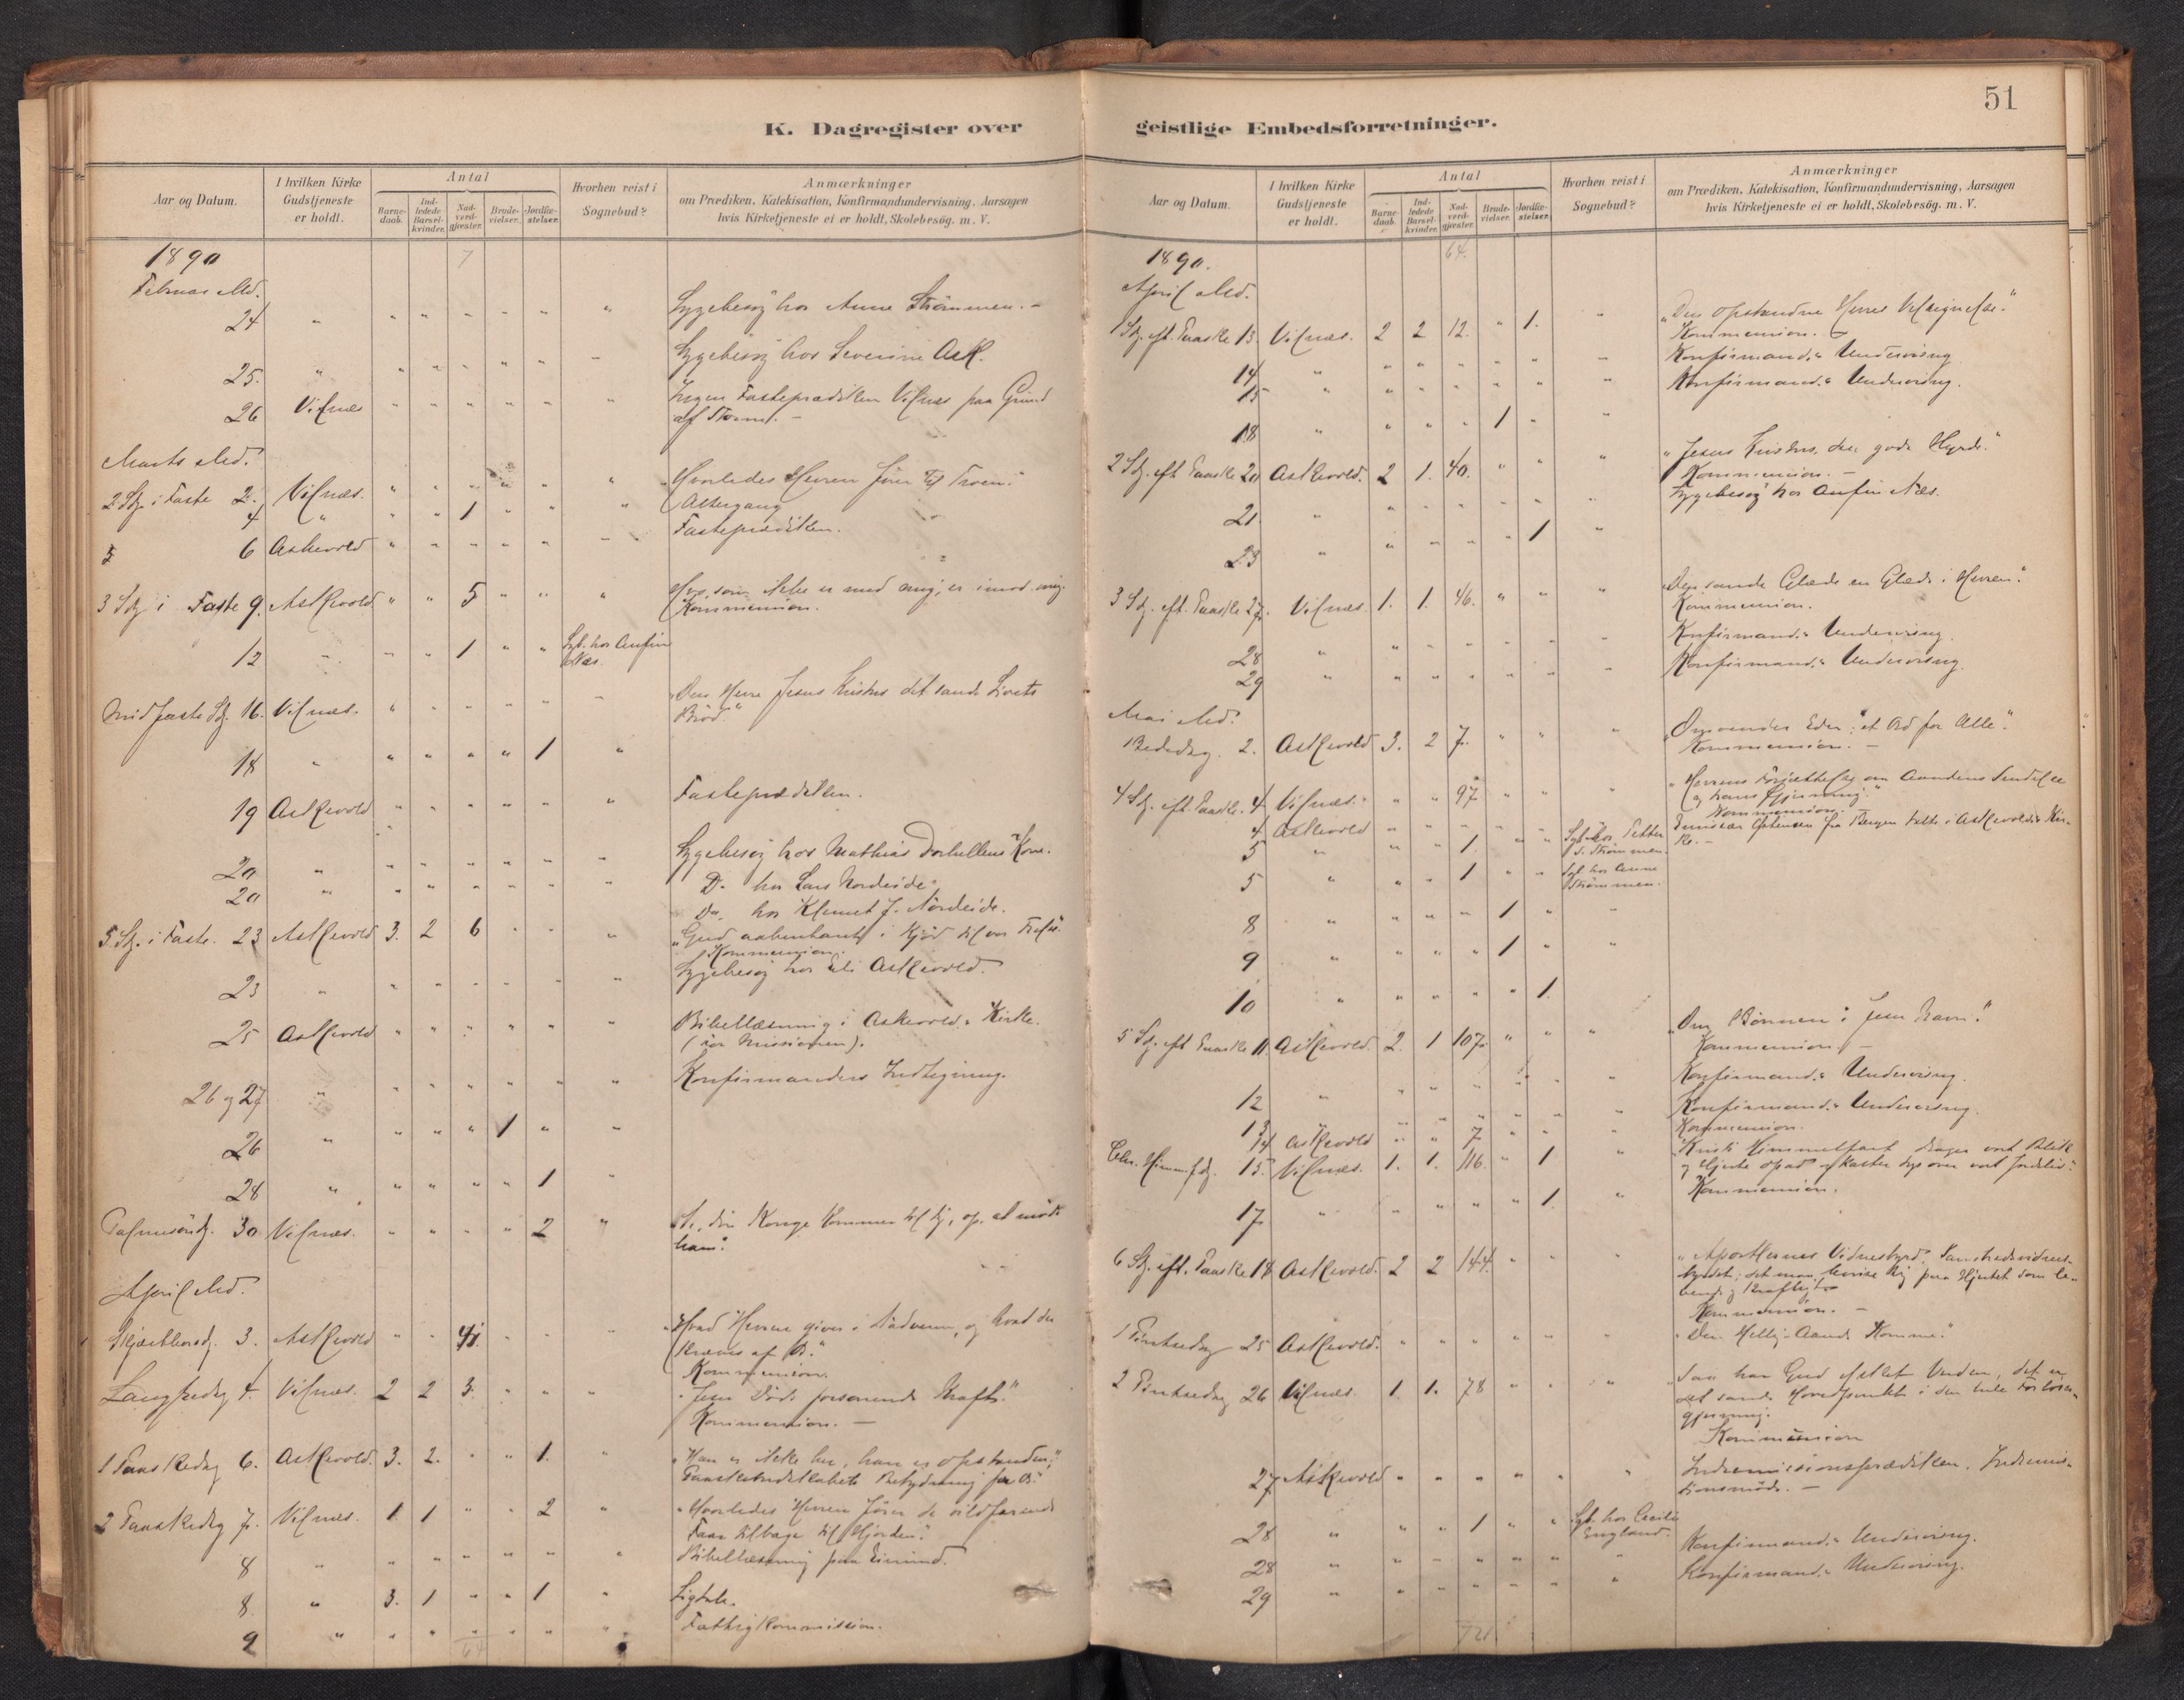 51
K. Dagregister over
geistlige Embedsforretninger.
Aar og Datum.
I hvilken Kirke Gudstjeneste er holdt.
Antal
Barnedaab.
Indledede Barselkvinder.
Nadverdgjæster.
Brudevielser.
Jordfæstelser.
Hvorhen reist i Sognebud?
Anmærkninger
om Prædiken, Katekisation, Konfirmandundervisning, Aarsagen
hvis Kirketjeneste ei er holdt, Skolebesög. m. V.
1890 7
Februar Md.
24 " " " " " " " Sygebesög hos Anne Strömmen. -
25. " " " " " " - Sygebesög hos Severine Ask.
26 Vilnæs " " " " " " Ingen Fasteprædiken Vilnæs paa Grund
af Storm. -
Marts Md.
2 Sdg. i Faste 2. Vilnæs. " " " " " " "Hvorledes Herren förer til Troen."
4 " " " 1 " " " Altergang
6 Askevold " " " " " " Fasteprædiken.
3 Sdg i Faste 9. Askevold " " 5 " " " "Hvo, som ikke er med mig, er imod mig.
Kommunion.
12 " " " 1 " " Sgb. hos Anfin
Næs.
Midfaste Sdg. 16. Vilnæs. " " " " " " "Den Herre Jesus Kristus det sande Livets
Bröd."
18 " " " " " 1 "
19 Askevold " " " " " " Fasteprædiken.
20 " " " " " " " Sygebesög hos Mathias Kone.
20 " " " " " " " Do. hos Lars Nordeide.
Do. hos Klemet J. Nordeide.
5 Sdg. i Faste. 23 Askevold 3. 2 6 " " " "Gud aabenbaret i Kjöd til vor Frelse."
Kommunion.
23 " " " " " " " Sygebesög hos Eli Askevold.
25 Askevold " " " " " " Bibellæsning i Askevolds Kirke.
(for Missionen).
26 og 27 " " " " " " " Konfirmanders Indtegning.
26 " " " " 1 " "
28 " " " " " 1 "
Palmesöndg. 30 Vilnæs. " " " " 2 " "Se, din Konge kommer til dig, op, at möde
ham."
April Md.
Skjærthorsdg. 3. Askevold " " 41. " " " "Hvad Herren giver i Nadveren, og hvad der
kræves af os."
Kommunion.
Langfredag 4. Vilnæs. 2 2 3. " " " "Jesu Döds forsonende Kraft."
Kommunion. -
1 Paaskedag 6. Askevold. 3. 2. " " 1. " "Han er ikke her, han er opstanden,"
Paaskebudskabets Betydning for os."
2 Paaskedag 7. Vilnæs. 1 1 " " 2 " "Hvorledes Herren förer de vildfarende
Faar tilbage til Hjorden."
8 " " " " " " " Bibellæsning paa
8. " 3. 1 " " 1 " Ligtale.
9 " " " " " " " Fattigkommission.
64
Aar og Datum.
I hvilken Kirke Gudstjeneste er holdt.
Antal
Barnedaab.
Indledede Barselkvinder.
Nadverdgjæster.
Brudevielser.
Jordfæstelser.
Hvorhen reist i Sognebud?
Anmærkninger
om Prædiken, Katekisation, Konfirmandundervisning, Aarsagen
hvis Kirketjeneste ei er holdt, Skolebesög. m. V.
1890. 64.
April Md.
1 Sdg. eft. Paaske 13. Vilnæs. 2 2 12. " 1. " "Den opstandne Herres Velsignelse."
Kommunion. -
14 " " " " " " " Konfirmand.- Undervisng
15 " " " " " " " Konfirmand.- Undervisng.
18 " " " " 1 " "
2 Sdg. eft Paaske 20 Askevold. 2 1. 40. " " " "Jesus Kristus, den gode Hyrde."
Kommunion. -
21 " " " " " " " Sygebesög hos Anfin Næs.
23 " " " " " 1 "
3 Sdg. eft. Paaske 27. Vilnæs 1. 1. 46. " " " "Den sande Glæde en Glæde i Herren."
Kommunion.
28 " " " " " " " Konfirmand.- Undervisng.
29 " " " " " " " Konfirmand.- Undervisng.
Mai Md.
Bededag. 2. Askevold 3. 2 7. " " " "Omvender Eder", et Ord for Alle."
Kommunion. -
4 Sdg. eft. Paaske. 4. Vilnæs. " " 97 " " " "Herrens Forjættelse om Aandens Sendelse
og hans Gjerning."
Kommunion.
4 Askevold " " " " " fra Bergen talte i Askevolds Kirke. -
5 " " " 1. " " Sgb. hos Petter
S. Strömmen.
5 " " " 1 " " Sgb. hos Anne
Strömmen.
8 " " " " 1 " "
9 " " " " 1 " "
10 " " " " " 1. "
5 Sdg. eft Paaske 11. Askevold. 2. 1 107. " " " "Om Bönnen i Jesu Navn."
Kommunion. -
12 " " " " " " " Konfirmand.- Undervisng.
13 " " " " " " Konfirmand.- Undervisng.
14 Askevold " " 7 " " " Kommunion.
Chr. Himmelf.dg. 15. Vilnæs. 1. 1. 116. " 1 " "Kristi Himmelfart drager vort Blik
og Hjerte opad og kaster Lys over vort Jordeliv."
Kommunion.
17 " " " " " 1 "
6 Sdg. eft. Paaske 18 Askevold. 2 2 144. " " " "Apostlernes Vidnesbyrd Sandhedsvidnesbyrdet; det maa bevise sig paa Hjertet som levende og kraftigt
Kommunion. -
1 Pintsedag 25 Askevold. " " " " " " "Den Hellig-Aands Komme."
2 Pintsedag 26 Vilnæs. 1. 1. 78 " " " "Saa har Gud elsket Verden, det er
det sande Hovedpunkt i den hele Forlösergjerning.
Kommunion
27 Askevold " " " " " " Indremissionsprædiken. Indremissionsmöde. -
28 " " " 1 " " Sgb. hos Cecilie
England.
28 " " " " " " " Konfirmand.- Undervisng.
29 " " " " " " " Konfirmand.- Undervisng.
721